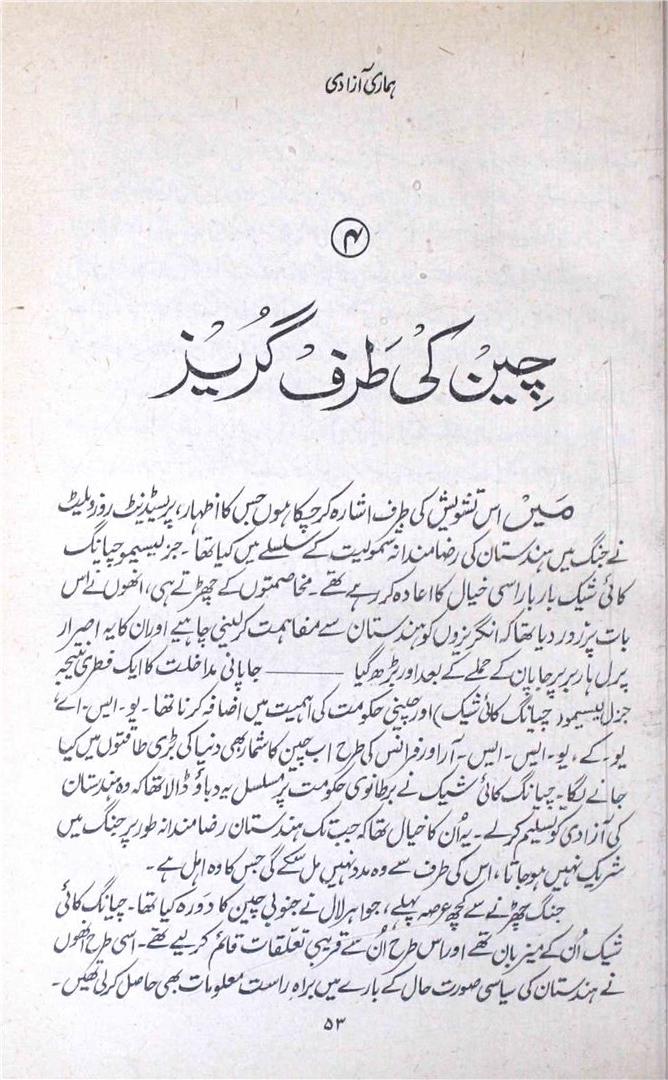 ہماری آزادی
۴
چین کی طرف گریز
میں اس تشویش کی طرف اشارہ کر چکا ہوں جس کا اظہار، پریسیڈینٹ روزویلیٹ
نے جنگ میں ہندستان کی رضامندانہ شمولیت کے سلسلے میں کیا تھا۔ جنرلیسیمو چیانگ
کائی شیک بار بار اسی خیال کا اعادہ کر رہے تھے۔ مخاصمتوں کے چھڑتے ہی، انھوں نے اس
بات پر زور دیا تھا کہ انگریزوں کو ہندستان سے مفاہمت کر لینی چاہیے اور ان کا یہ اصرار
پرل ہاربر پر جاپان کے حملے کے بعد اور بڑھ گیا ——— جاپانی مداخلت کا ایک فطری نتیجہ
جنرلیسیمو (چیانگ کائی شیک) اور چینی حکومت کی اہمیت میں اضافہ کرنا تھا۔ یو۔ ایس۔ اے،
یو۔ کے، یو۔ ایس۔ ایس۔ آر اور فرانس کی طرح اب چین کا شمار بھی دنیا کی بڑی طاقتوں میں کیا
جانے لگا۔ چیانگ کائی شیک نے برطانوی حکومت پر مسلسل یہ دباؤ ڈالا تھا کہ وہ ہندستان
کی آزادی کو تسلیم کر لے۔ یہ اُن کا خیال تھا کہ جب تک ہندستان رضامندانہ طور پر جنگ میں
شریک نہیں ہو جاتا، اس کی طرف سے وہ مدد نہیں مل سکے گی جس کا وہ اہل ہے۔
جنگ چھڑنے سے کچھ عرصہ پہلے، جواہر لال نے جنوبی چین کا دورہ کیا تھا۔ چیانگ کائی
شیک اُن کے میزبان تھے اور اس طرح اُن سے قریبی تعلقات قائم کر لیے تھے۔ اسی طرح انھوں
نے ہندستان کی سیاسی صورت حال کے بارے میں براہِ راست معلومات بھی حاصل کر لی تھیں۔
۵۳